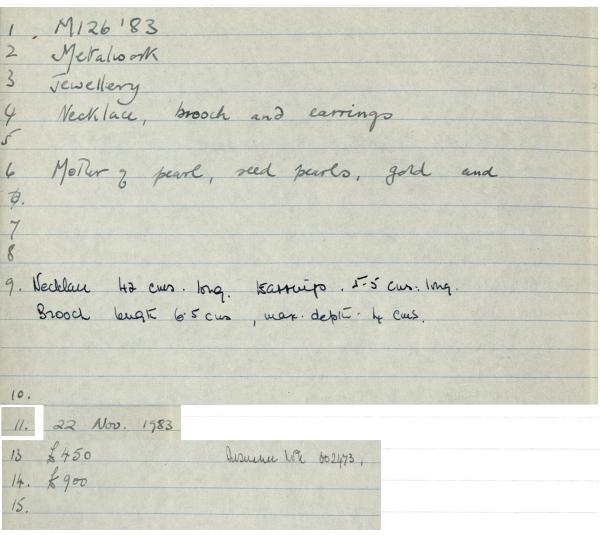 1 M126 '83
2 Metalwork
3 Jewellery
4 Necklace, brooch and earrings
5
6 Mother of pearl, seed pearls, gold and
7
8
9. Necklace 42 cms. long. Earrings . 5.5 cms. long.
Brooch length 6.5 cms , max. depth. 4 cms.
10.
11. 22 Nov. 1983
13 £450 002473,
14. £900
15.